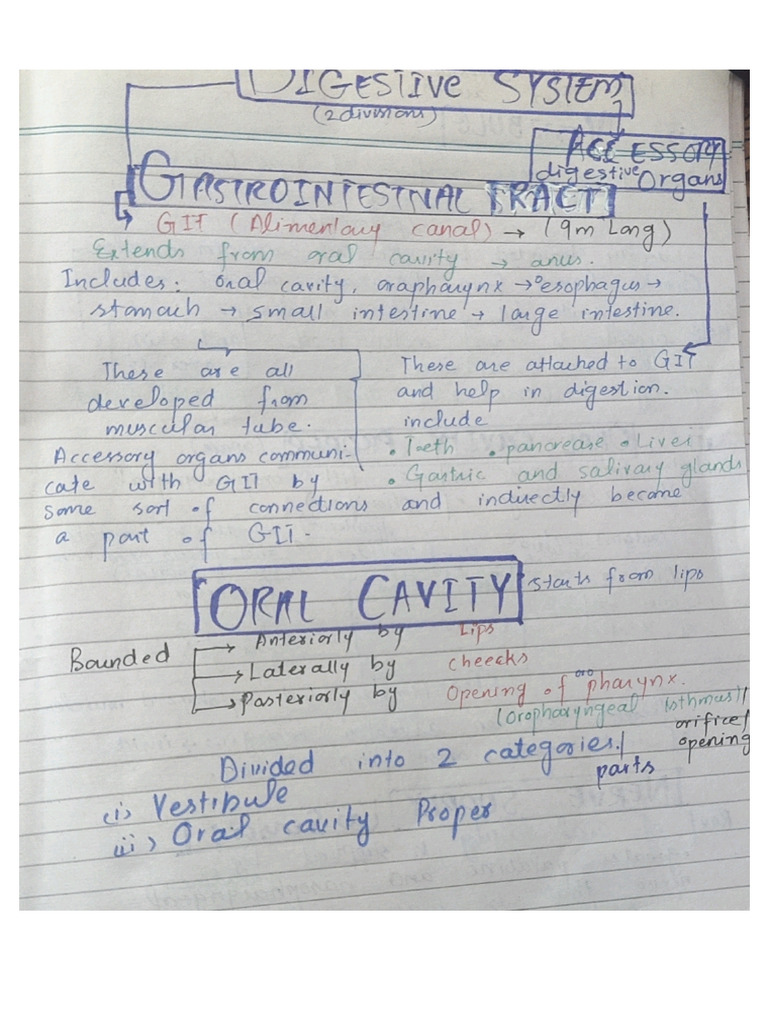 DIGESTIVE SYSTEM
(2 divisions)
ACCESSORY
digestive Organs
GASTROINTESTINAL TRACT
GIT (Alimentary canal) → (9m Long)
Extends from oral cavity → anus.
Includes: oral cavity, orapharynx → oesophagus →
stomach → small intestine → large intestine.
These are all
developed from
muscular tube.
These are attached to GIT
and help in digestion.
include
• Teeth • pancrease • Liver
• Gastric and salivary glands
Accessory organs communi-
cate with GIT by
some sort of connections and indirectly become
a part of GIT.
ORAL CAVITY starts from lips
Bounded
→ Anteriorly by Lips
→ Laterally by cheecks
→ Posteriorly by Opening of oropharynx.
(oropharyngeal isthmus)/
orifice/
opening
Divided into 2 categories/
parts
(i) Vestibule
(ii) Oral cavity Proper